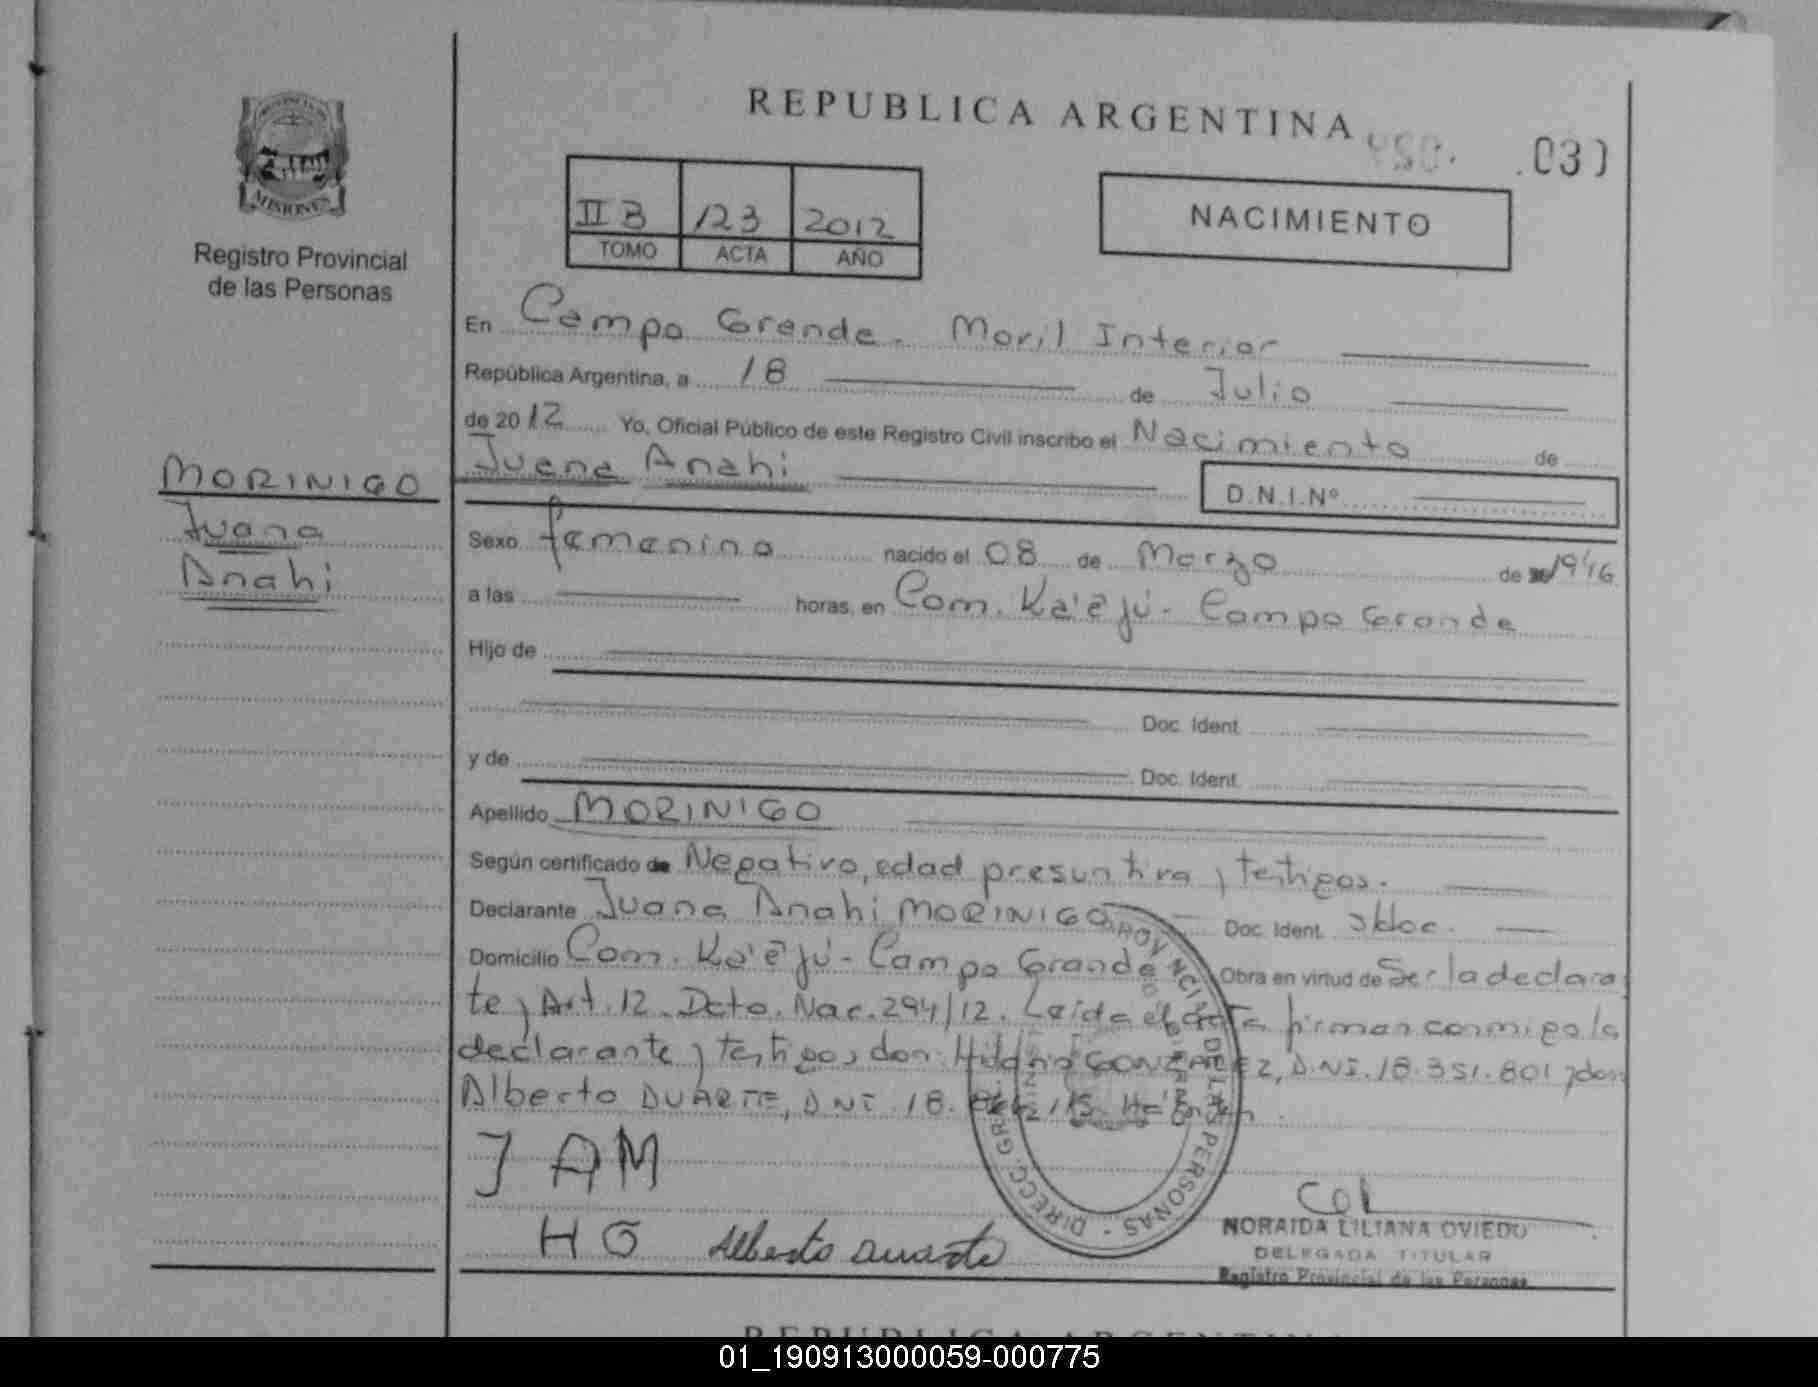 REPUBLICA ARGENTINA
.03)
MISIONES
Registro Provincial
de las Personas
II B 123 2012
TOMO ACTA AÑO
NACIMIENTO
En Campo Grande. Moril Interior
República Argentina, a 18 de Julio
de 2012 Yo, Oficial Público de este Registro Civil inscribo el Nacimiento de
Juana Anahi D.N.I.Nº
MORINIGO
Juana
Anahi
Sexo femenino nacido el 08 de Marzo de 1946
a las horas, en Com. Ka'ẽ jú - Campo Grande
Hijo de
Doc. Ident.
y de Doc. Ident.
Apellido MORINIGO
Según certificado de Negativo, edad presuntiva y testigos.
Declarante Juana Anahi MORINIGO Doc. Ident.
Domicilio Com. Ka'ẽ jú - Campo Grande Obra en virtud de Ser la declaran
te y Art. 12. Dcto. Nac. 294/12. Leida el acta firman conmigo la
declarante y testigos don: Hilario GONZALEZ, D.NI. 18.351.801 y don:
Alberto DUARTE, D.NI. 18.
J AM
H G Alberto Duarte
DIRECC. GRAL. PROVINCIAL DE LAS PERSONAS
NORAIDA LILIANA OVIEDO
DELEGADA TITULAR
Registro Provincial de las Personas
REPUBLICA ARGENTINA
01_190913000059-000775